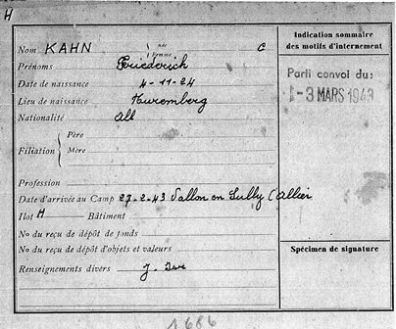 H
Indication sommaire
des motifs d'internement
Nom KAHN née Femme C
Prénoms Friederich
Date de naissance 4-11-24
Lieu de naissance Nuremberg
Nationalité All
Parti convoi du:
-3 MARS 1943
Filiation { Père
Mère
Profession
Date d'arrivée au Camp 27-2-43 Vallon en Sully (Allier
Ilot H Bâtiment
No du reçu de dépôt de fonds
No du reçu de dépôt d'objets et valeurs
Spécimen de signature
Renseignements divers J.
1686